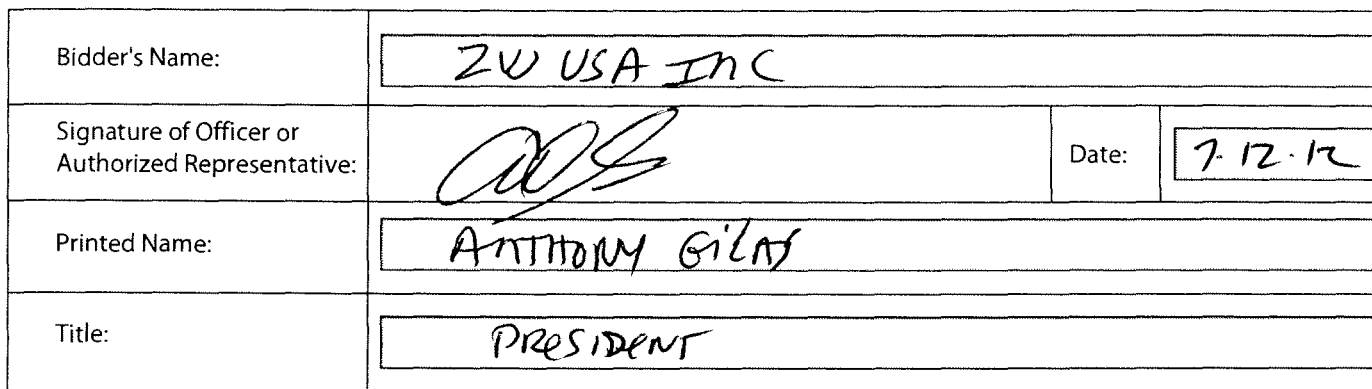 Bidder's Name: ZW USA Inc
Signature of Officer or
Authorized Representative:
Date: 7.12.12
Printed Name: ANTHONY
Title: PRESIDENT